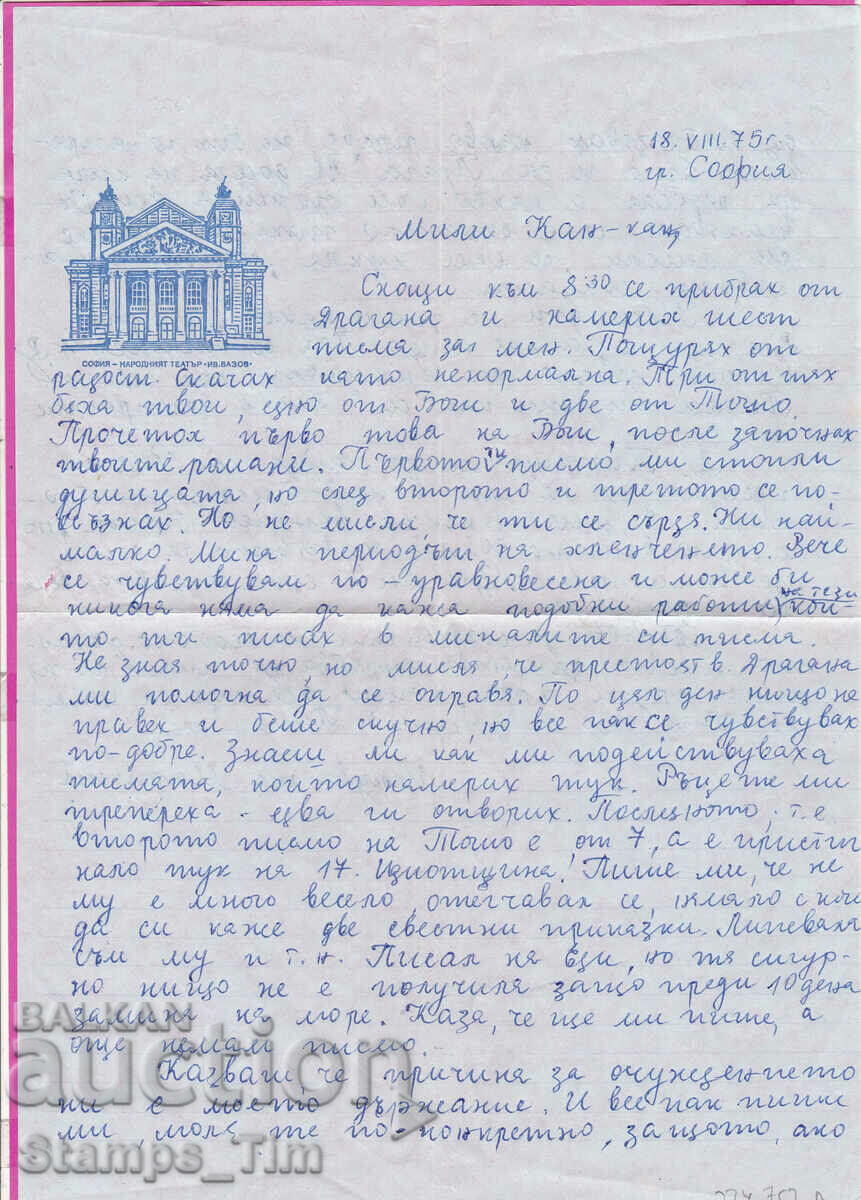 18. VIII. 75 г.
гр. София
Мили Кан-кан,
СОФИЯ – НАРОДНИЯТ ТЕАТЪР "ИВ. ВАЗОВ"
Снощи към 8:30 се прибрах от
Драгана и намерих шест
писма за мен. Пощурях от
радост. Скачах като ненормална. Три от тях
бяха твои, едно от Боши и две от Тошо.
Прочетох първо това на Боши, после започнах
твоите романи. Първото ти писмо ми стопли
душицата, но след второто и третото се по-
скъзнах. Но не мисли че ти се сърдя. Ни най-
малко. Мина периодът на хленченето. Вече
се чувствувам по-уравновесена и може би
никога няма да кажа подобни работи на тези кои-
то ти писах в миналите си писма.
Не зная точно, но мисля, че престоят в Драгана
ми помогна да се оправя. По цял ден нищо не
правех и беше скучно, но все пак се чувствувах
по-добре. Знаеш ли как ми подействуваха
писмата, които намерих тук. Ръцете ми
трепереха - едва ги отворих. Последното, т.е
второто писмо на Тошо е от 7, а е пристиг
нало тук на 17. Идиотщина! Пише ми, че не
му е много весело, отегчавал се, нямало с кой
да си каже две свестни приказки. Липсвала
съм му и т.н. Писал на Еди, но тя сигур-
но нищо не е получила защо преди 10 дена
замина на море. Каза, че ще ми пише, а
още нямам писмо.
Казваш че причина за очуждението
ни е моето държание. И все пак пиши
ми, моля те по-конкретно, защото, ако
BALKAN
auction
Stamps_Tim